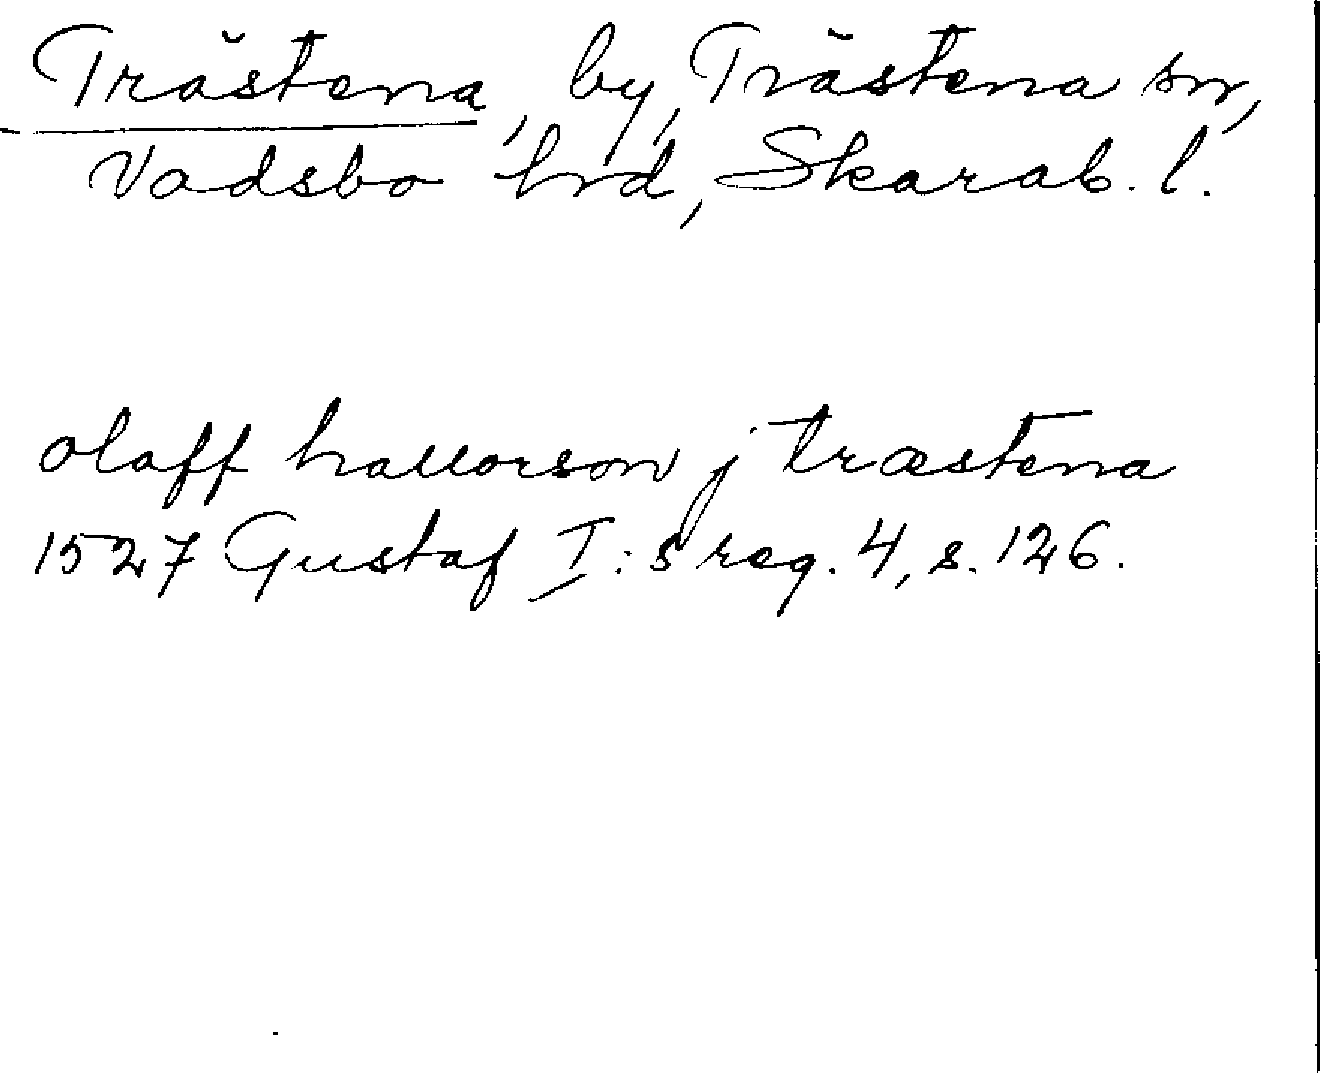 Trästena, by, Trästena sn,
Vadsbo hrd, Skarab. l.
olaff hallorson j træstena
1527 Gustaf I:s reg. 4, s. 126.